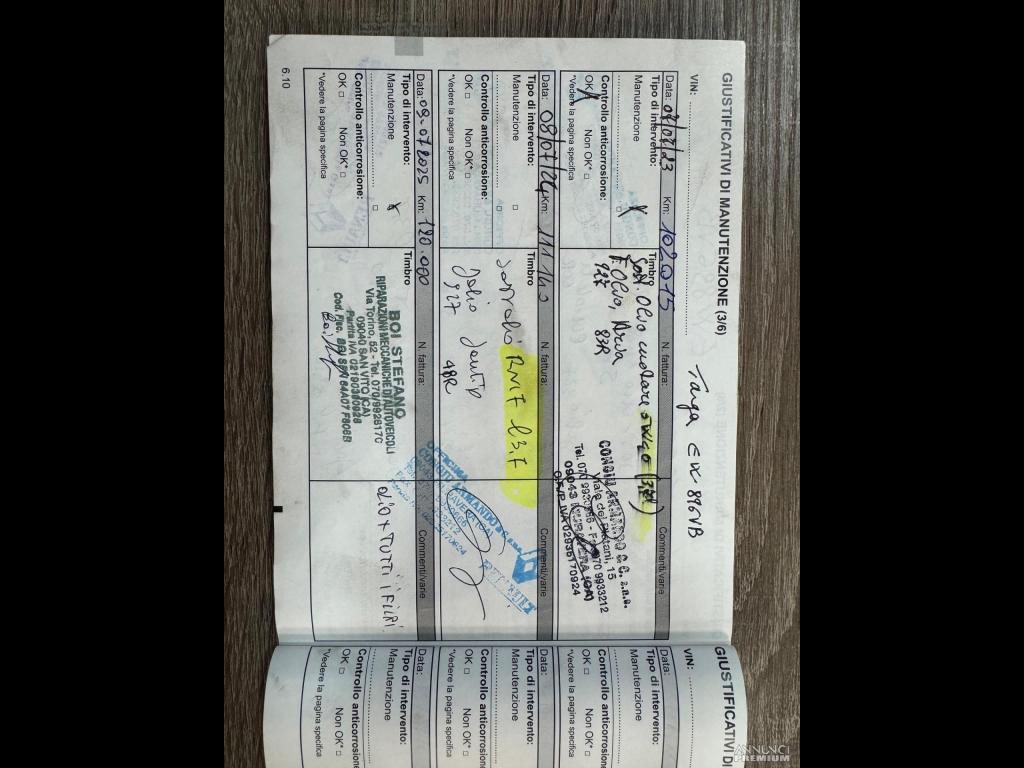 GIUSTIFICATIVI DI MANUTENZIONE (3/6)
VIN: Targa EK 896VB
Data: 07/07/23 Km: 102015 N. fattura: Commenti/varie
Tipo di intervento: Timbro
Manutenzione X
Controllo anticorrosione:
OK Non OK*
*Vedere la pagina specifica
Sost. Olio motore
F. Olio, Aria
927 83R
CONGIU ARMANDO & C. s.n.c.
Viale dei Platani, 15
Tel. 070 9930596 - 070 9933212
09043 MURAVERA (CA)
P. IVA 02935170924
Data: 08/07/24 Km: 111140 N. fattura: Commenti/varie
Tipo di intervento: Timbro
Manutenzione
Controllo anticorrosione:
OK Non OK*
*Vedere la pagina specifica
RN17 l3,7
927 48R
OFFICINA
CONGIU ARMANDO
Data: 09-07-2025 Km: 120.000 N. fattura: Commenti/varie
Tipo di intervento: Timbro
Manutenzione X
Controllo anticorrosione:
OK Non OK*
*Vedere la pagina specifica
BOI STEFANO
RIPARAZIONI MECCANICHE DI AUTOVEICOLI
Via Torino, 52 - Tel. 070/992817C
09040 SAN VITO (CA)
Partita IVA 02190390928
Cod. Fisc. BOI SFN 64A07 F808B
OLIO + TUTTI I FILTRI
6.10
GIUSTIFICATIVI DI
VIN:
Data:
Tipo di intervento:
Manutenzione
Controllo anticorrosione:
OK Non OK*
*Vedere la pagina specifica
Data:
Tipo di intervento:
Manutenzione
Controllo anticorrosione:
OK Non OK*
*Vedere la pagina specifica
Data:
Tipo di intervento:
Manutenzione
Controllo anticorrosione:
OK Non OK*
*Vedere la pagina specifica
ANNUNCI
PREMIUM